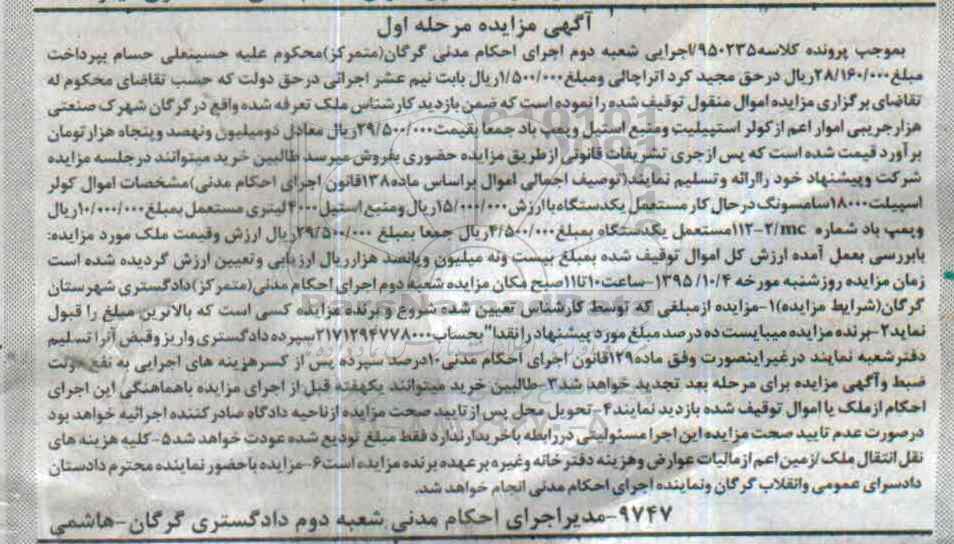 آگهی مزایده مرحله اول
بموجب پرونده کلاسه۹۵۰۲۳۵/اجرایی شعبه دوم اجرای احکام مدنی گرگان(متمرکز)محکوم علیه حسینعلی حسام بپرداخت
مبلغ۲۸/۱۶۰/۰۰۰ریال درحق مجید کرد اتراچالی ومبلغ۱/۵۰۰/۰۰۰ریال بابت نیم عشر اجرائی درحق دولت که حسب تقاضای محکوم له
تقاضای برگزاری مزایده اموال منقول توقیف شده را نموده است که ضمن بازدید کارشناس ملک تعرفه شده واقع درگرگان شهرک صنعتی
هزارجریبی اموار اعم ازکولر اسپیلیت ومنبع استیل وپمپ باد جمعا بقیمت۲۹/۵۰۰/۰۰۰ریال معادل دومیلیون ونهصد وپنجاه هزارتومان
برآورد قیمت شده است که پس ازجری تشریفات قانونی ازطریق مزایده حضوری بفروش میرسد طالبین خرید میتوانند درجلسه مزایده
شرکت وپیشنهاد خود راارائه وتسلیم نمایند(توصیف اجمالی اموال براساس ماده۱۳۸قانون اجرای احکام مدنی)مشخصات اموال کولر
اسپیلت۱۸۰۰۰سامسونگ درحال کار مستعمل یکدستگاه باارزش۱۵/۰۰۰/۰۰۰ریال ومنبع استیل۴۰۰۰لیتری مستعمل بمبلغ۱۰/۰۰۰/۰۰۰ریال
وپمپ باد شماره ۱۱۲-۲/mcمستعمل یکدستگاه بمبلغ۴/۵۰۰/۰۰۰ریال جمعا بمبلغ ۲۹/۵۰۰/۰۰۰ریال ارزش وقیمت ملک مورد مزایده:
بابررسی بعمل آمده ارزش کل اموال توقیف شده بمبلغ بیست ونه میلیون وپانصد هزارریال ارزیابی وتعیین ارزش گردیده شده است
زمان مزایده روزشنبه مورخه ۱۳۹۵/۱۰/۴-ساعت۱۰تا۱۱صبح مکان مزایده شعبه دوم اجرای احکام مدنی(متمرکز)دادگستری شهرستان
گرگان(شرایط مزایده)۱-مزایده ازمبلغی که توسط کارشناس تعیین شده شروع و برنده مزایده کسی است که بالاترین مبلغ را قبول
نماید۲-برنده مزایده میبایست ده درصد مبلغ مورد پیشنهاد رانقدا"بحساب۲۱۷۱۲۹۴۷۷۸۰۰۰سپرده دادگستری واریز وقبض آنرا تسلیم
دفترشعبه نمایند درغیراینصورت وفق ماده۱۲۹قانون اجرای احکام مدنی۱۰درصد سپرده پس از کسرهزینه های اجرایی به نفع دولت
ضبط وآگهی مزایده برای مرحله بعد تجدید خواهد شد۳-طالبین خرید میتوانند یکهفته قبل از اجرای مزایده باهماهنگی این اجرای
احکام ازملک یا اموال توقیف شده بازدید نمایند۴-تحویل محل پس ازتایید صحت مزایده ازناحیه دادگاه صادرکننده اجرائیه خواهد بود
درصورت عدم تایید صحت مزایده این اجرا مسئولیتی دررابطه باخریدارندارد فقط مبلغ تودیع شده عودت خواهد شد۵-کلیه هزینه های
نقل انتقال ملک /زمین اعم ازمالیات عوارض وهزینه دفترخانه وغیره برعهده برنده مزایده است۶-مزایده باحضور نماینده محترم دادستان
دادسرای عمومی وانقلاب گرگان ونماینده اجرای احکام مدنی انجام خواهد شد.
۹۷۴۷-مدیراجرای احکام مدنی شعبه دوم دادگستری گرگان-هاشمی